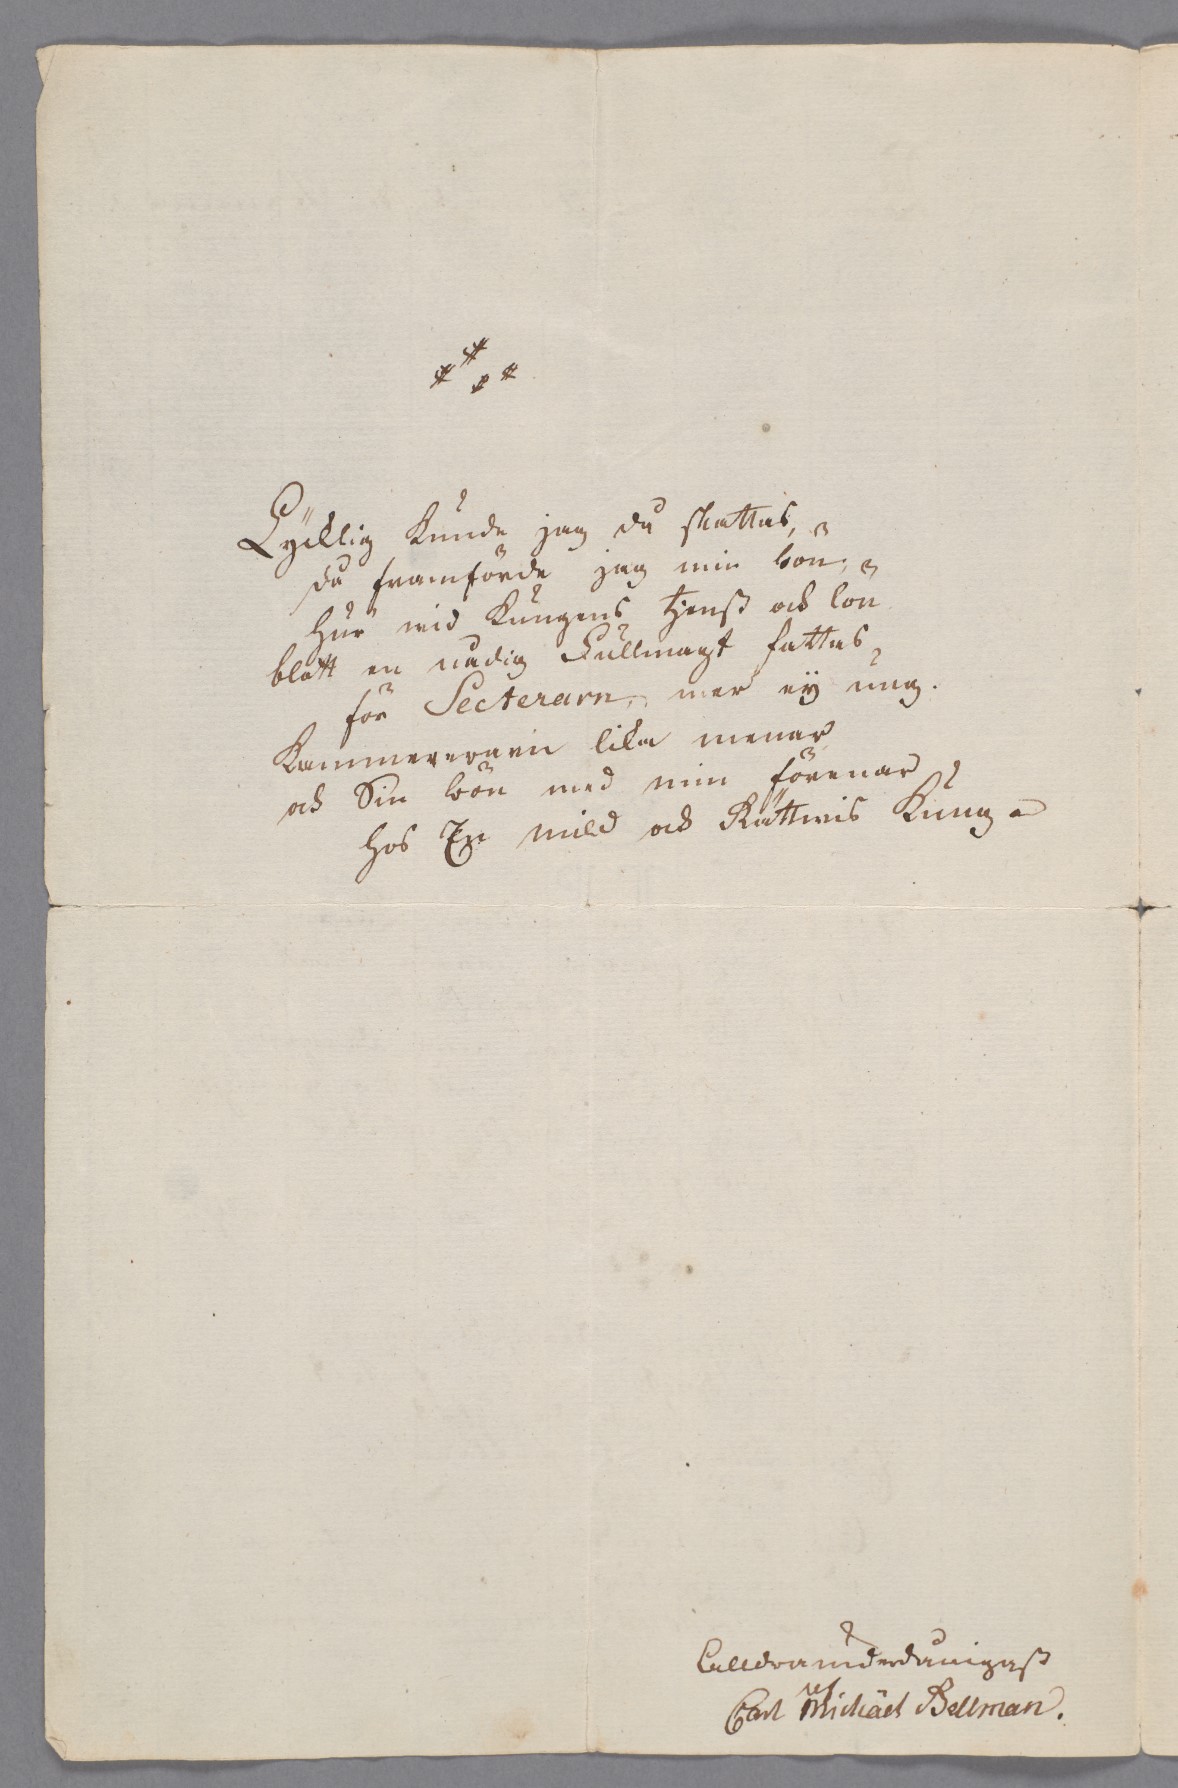 Lycklig Kunde jag då skattas,
då framförde jag min bön,
hur wid Kungens tjenst och lön
blott en nådig Fullmagt fattas,
för Secterarn, mer ej ung.
Kammererarn lika menar
och Sin bön med min förenar
hos En mild och Rättwis Kung
Alldraunderdånigast
Carl Michäel Bellman.